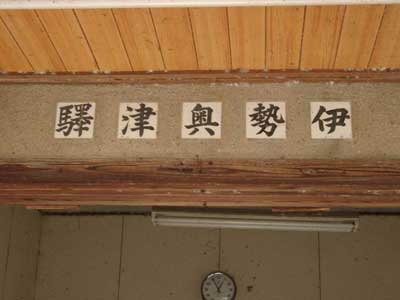 伊勢奥津驛